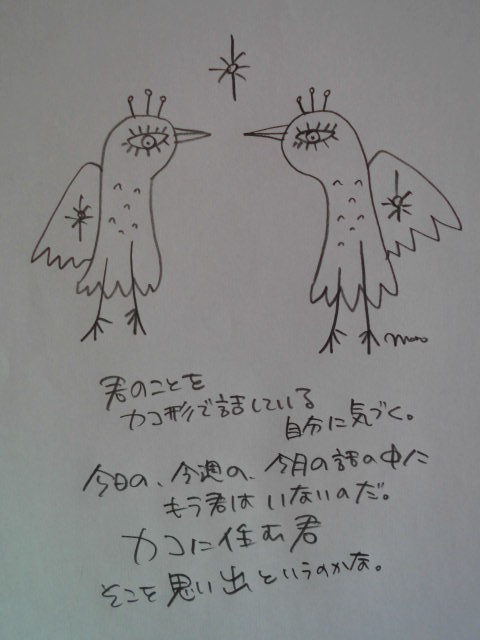 maro
君のことを
カコ形で話している
自分に気づく。
今日の、今週の、今月の話の中に
もう君はいないのだ。
カコに住む君
そこを思い出というのかな。